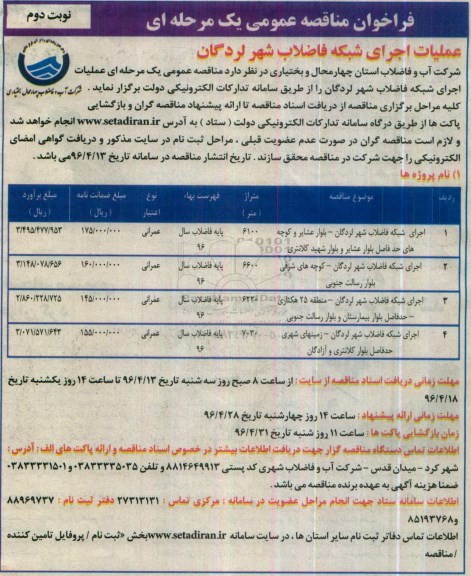 نوبت دوم
فراخوان مناقصه عمومی یک مرحله ای
عملیات اجرای شبکه فاضلاب شهر لردگان
شرکت آب و فاضلاب استان چهارمحال و بختیاری در نظر دارد مناقصه عمومی یک مرحله ای عملیات
اجرای شبکه فاضلاب شهر لردگان را از طریق سامانه تدارکات الکترونیکی دولت برگزار نماید .
کلیه مراحل برگزاری مناقصه از دریافت اسناد مناقصه تا ارائه پیشنهاد مناقصه گران و بازگشایی
پاکت ها از طریق درگاه سامانه تدارکات الکترونیکی دولت ( ستاد ) به آدرس www.setadiran.ir انجام خواهد شد
و لازم است مناقصه گران در صورت عدم عضویت قبلی ، مراحل ثبت نام در سایت مذکور و دریافت گواهی امضای
الکترونیکی را جهت شرکت در مناقصه محقق سازند . تاریخ انتشار مناقصه در سامانه تاریخ ۹۶/۴/۱۳ می باشد .
۱) نام پروژه ها
ردیف | موضوع مناقصه | متراژ ( متر ) | فهرست بهاء | نوع اعتبار | مبلغ ضمانت نامه ( ریال ) | مبلغ برآورد ( ریال )
۱ | اجرای شبکه فاضلاب شهر لردگان – بلوار عشایر و کوچه های حد فاصل بلوار عشایر و بلوار شهید کلانتری | ۶۱۰۰ | پایه فاضلاب سال ۹۶ | عمرانی | ۱۷۵/۰۰۰/۰۰۰ | ۳/۴۹۵/۴۷۷/۹۵۳
۲ | اجرای شبکه فاضلاب شهر لردگان – کوچه های شرقی بلوار رسالت جنوبی | ۶۶۰۰ | پایه فاضلاب سال ۹۶ | عمرانی | ۱۶۰/۰۰۰/۰۰۰ | ۳/۱۴۸/۰۷۸/۶۵۶
۳ | اجرای شبکه فاضلاب شهر لردگان – منطقه ۲۵ هکتاری – حدفاصل بلوار بیمارستان و بلوار رسالت جنوبی | ۶۲۲۰ | پایه فاضلاب سال ۹۶ | عمرانی | ۱۴۵/۰۰۰/۰۰۰ | ۲/۸۶۰/۲۲۸/۷۲۵
۴ | اجرای شبکه فاضلاب شهر لردگان – زمینهای شهری حدفاصل بلوار کلانتری و آزادگان | ۷۰۳۰ | پایه فاضلاب سال ۹۶ | عمرانی | ۱۵۵/۰۰۰/۰۰۰ | ۳/۰۷۱/۵۷۱/۶۴۳
مهلت زمانی دریافت اسناد مناقصه از سایت : از ساعت ۸ صبح روز سه شنبه تاریخ ۹۶/۴/۱۳ تا ساعت ۱۴ روز یکشنبه تاریخ
۹۶/۴/۱۸
مهلت زمانی ارائه پیشنهاد : ساعت ۱۴ روز چهارشنبه تاریخ ۹۶/۴/۲۸
زمان بازگشایی پاکت ها : ساعت ۱۱ روز شنبه تاریخ ۹۶/۴/۳۱
اطلاعات تماس دستگاه مناقصه گزار جهت دریافت اطلاعات بیشتر در خصوص اسناد مناقصه و ارائه پاکت های الف : آدرس :
شهر کرد – میدان قدس – شرکت آب و فاضلاب شهری کد پستی ۸۸۱۴۶۴۹۹۱۳ و تلفن ۰۳۸۳۳۳۵۰۳۵ و ۰۳۸۳۳۳۳۱۵۰۱
ضمنا هزینه آگهی به عهده برنده مناقصه می باشد .
اطلاعات سامانه ستاد جهت انجام مراحل عضویت در سامانه : مرکزی تماس : ۲۷۳۱۳۱۳۱ دفتر ثبت نام : ۸۸۹۶۹۷۳۷
و ۸۵۱۹۳۷۶۸
اطلاعات تماس دفاتر ثبت نام سایر استان ها ، در سایت سامانه www.setadiran.ir بخش «ثبت نام / پروفایل تامین کننده
/ مناقصه